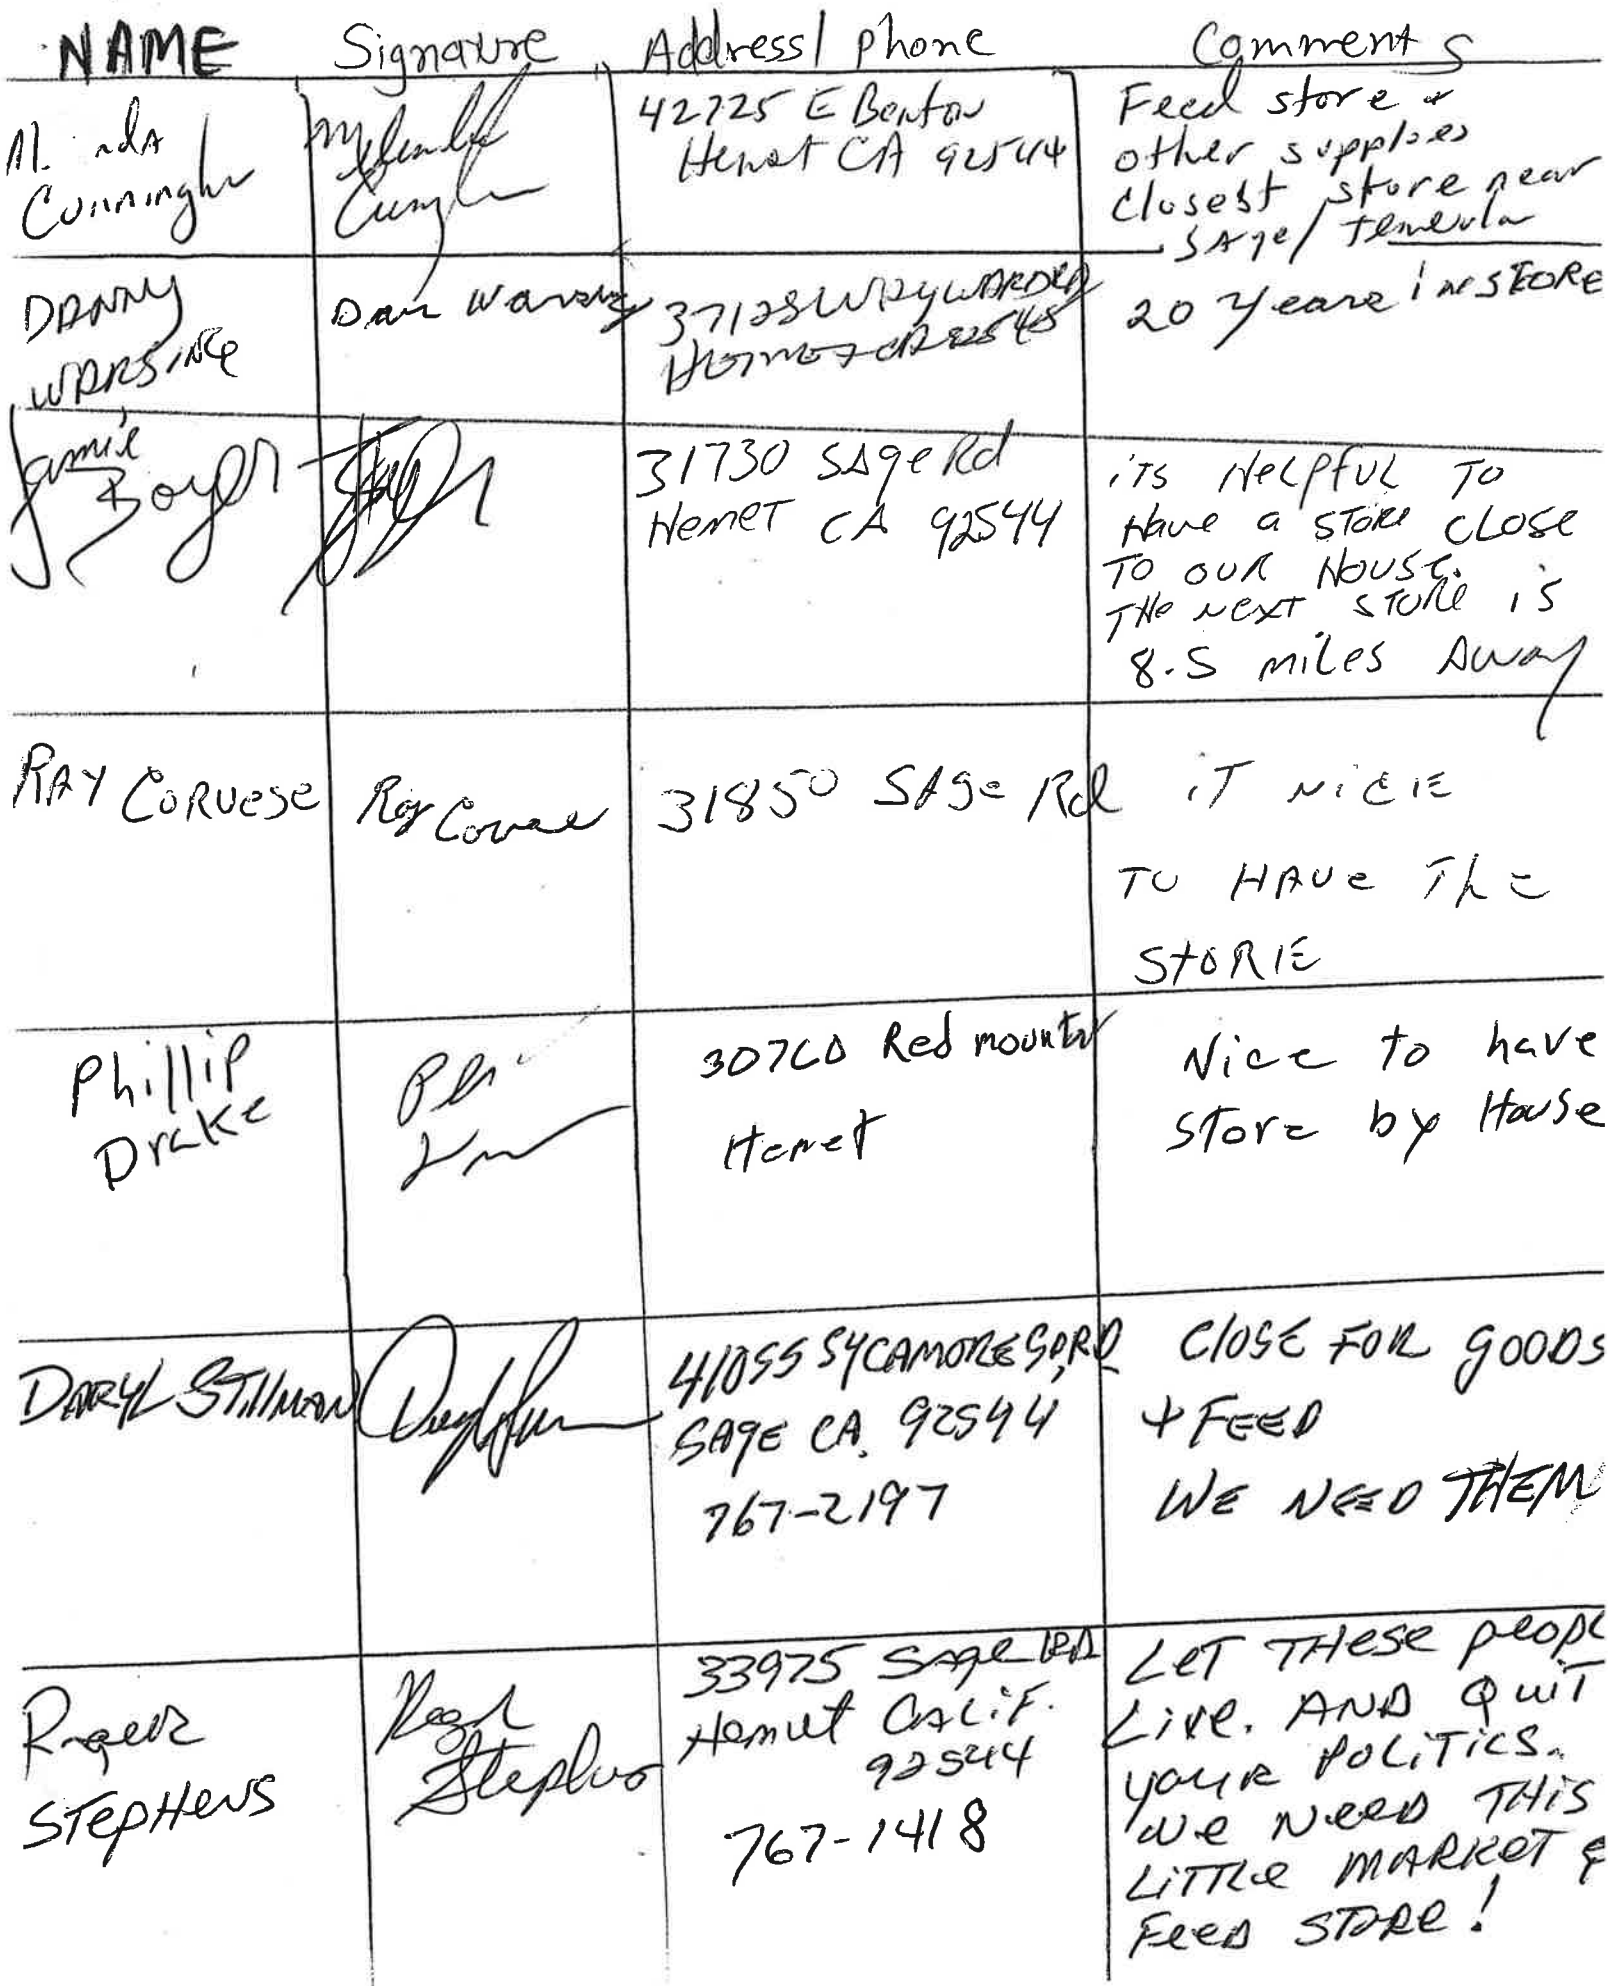 NAME Signature Address/phone Comments
Cunningh
42725 E Benton
Hemet CA 92544
Feed store &
other supplies
closest store near
SAge/Temecula
DANNY
WARSING
Dan
HEMET CA
20 years in STORE
Jamie
Boyer
31730 SAge Rd
Hemet CA 92544
iTs HeLpfuL To
Have a STORe CLOSe
TO OUR HOUSE.
THe NexT STORe iS
8.5 miLes AWAy
RAY CORVESE
Ray
31850 SAge Rd
iT NiCE
TO HAVE ThE
STORE
Phillip
Drake
Red mountain
Hemet
Nice to have
store by House
DARYL STILLMAN
41055 SYCAMORE SP. RD
SAGE CA. 92544
767-2197
CLOSE FOR GOODS
+ FEED
WE NEED THEM
Roger
STEPHENS
Stephens
33975 Sage RD
Hemet CALiF.
92544
767-1418
LeT THese peopl
Live. AND QuiT
youR POLiTiCS.
We NeeD THiS
LiTTLe MARKeT &
FeeD STORe!